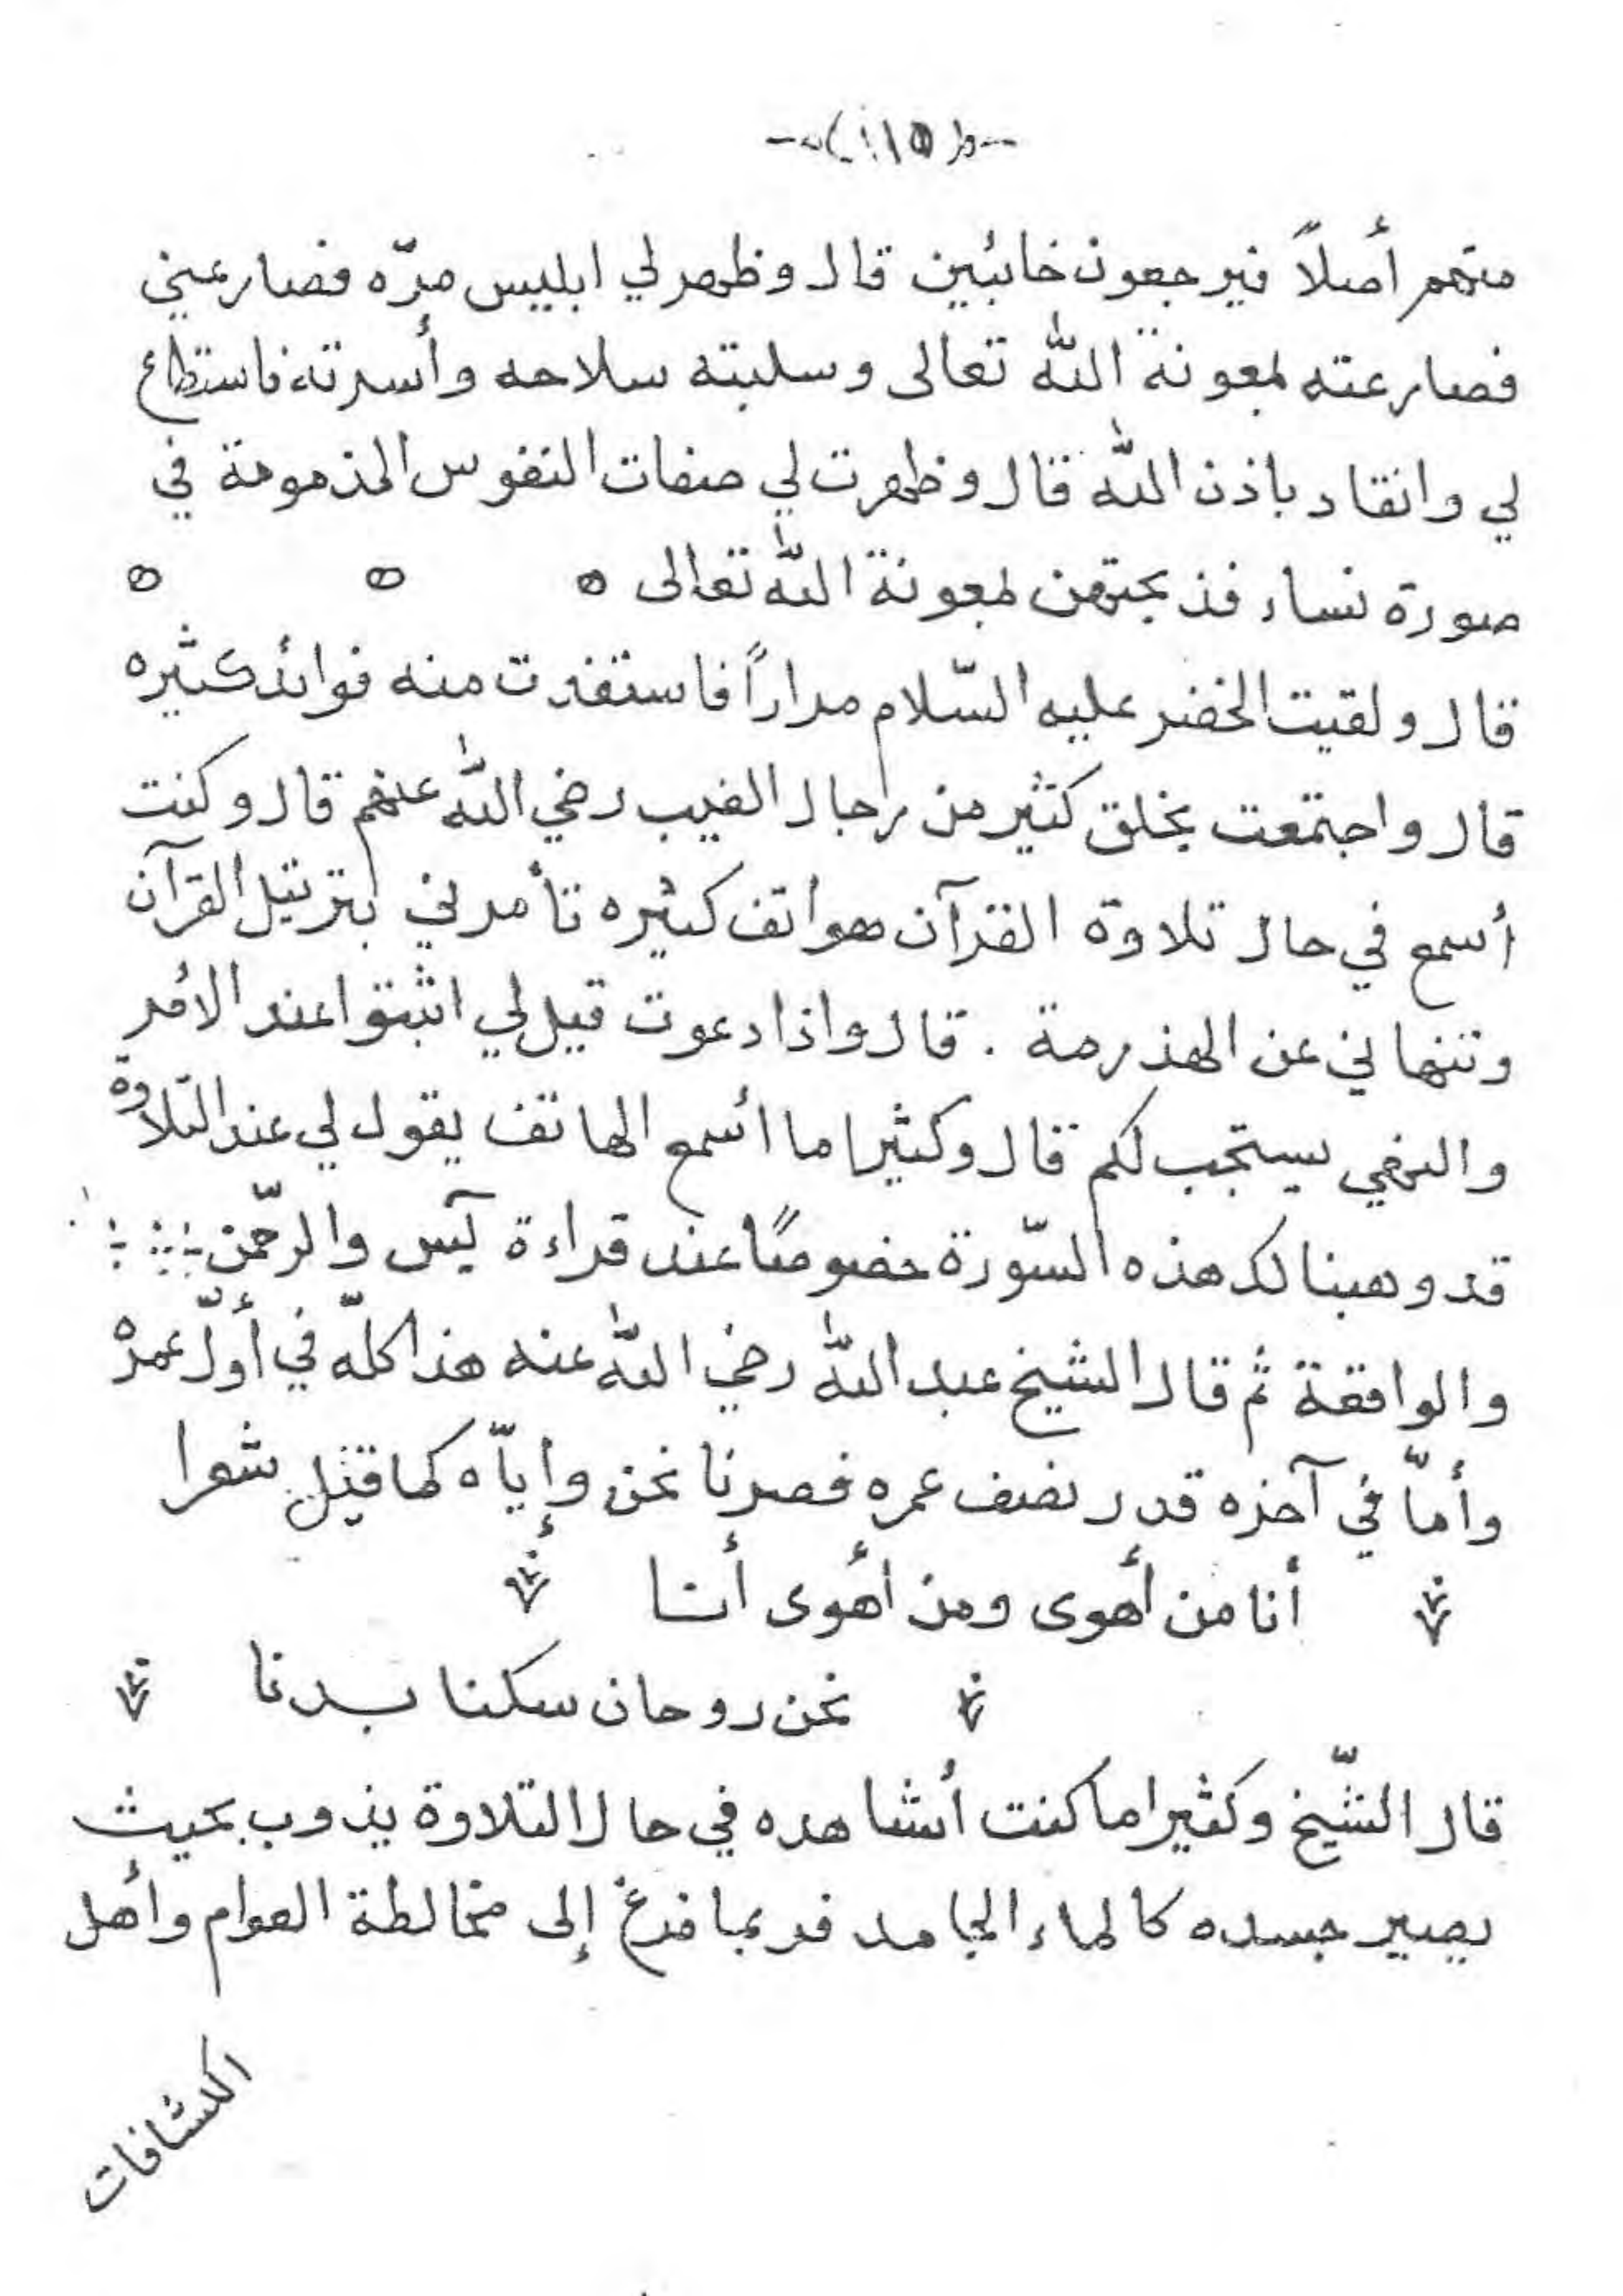 -﴿١١٥﴾-
منهم أصلاً فيرجعون خائبين قال وظهر لي ابليس مرّه فصارعني
فصارعته بمعونة اللّٰه تعالى وسلبته سلاحه وأسرته فاستطاع
لي وانقاد باذن اللّٰه قال وظهرت لي صفات النفوس المذمومة في
صورة نساء فذبحتهن بمعونة اللّٰه تعالى ه ه ه
قال ولقيت الخضر عليه السّلام مراراً فاستفدت منه فوائد كثيره
قال واجتمعت بخلق كثير من رجال الغيب رضي اللّٰه عنهم قال وكنت
أسمع في حال تلاوة القرآن هواتف كثيره تأمرني بترتيل القرآن
وتنهاني عن الهذرمة . قال واذا دعوت قيل لي اثبتوا عند الأمر
والنهي يستجب لكم قال وكثيرا ما أسمع الهاتف يقول لي عند التلاوة
قد وهبنا لك هذه السّورة خصوصًا عند قراءة يٓس والرحّمن
والواقعة ثم قال الشيخ عبد اللّٰه رضي اللّٰه عنه هذا كلّه في أوّل عمره
وأمّا في آخره قدر نصف عمره فصرنا نحن وإيّاه كما قيل شعرا
أنا من أهوى ومن أهوى أنا
نحن روحان سكنا بدنا
قال الشّيخ وكثيرا ما كنت أشاهده في حال التلاوة يذوب بحيث
يصير جسده كالماء الجامد فربما فرغ إلى مخالطة العوام وأهل
الكشافات